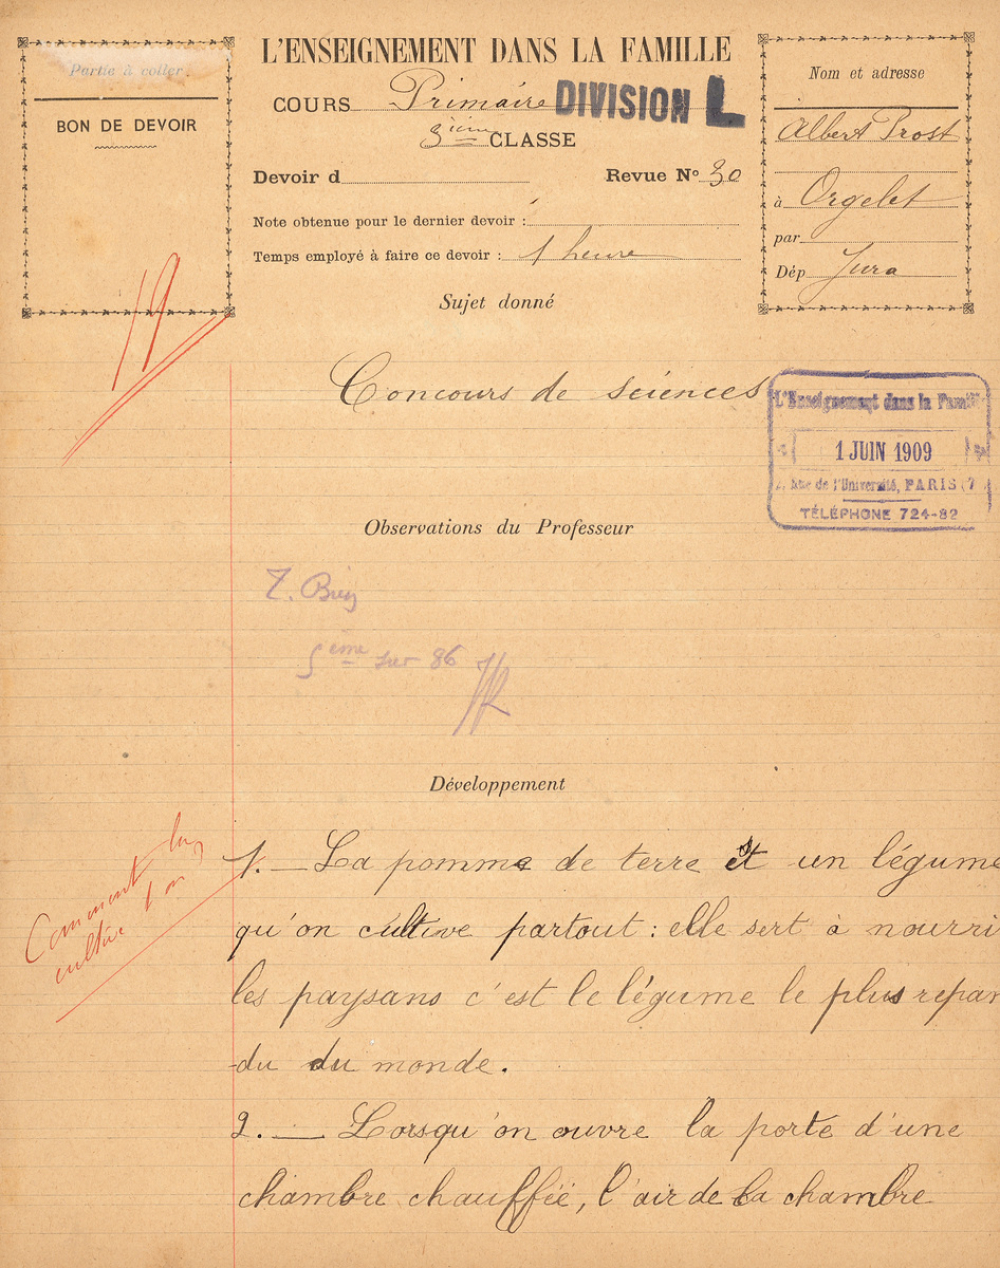 Partie à coller.
BON DE DEVOIR
L'ENSEIGNEMENT DANS LA FAMILLE
COURS Primaire DIVISION L
3ième CLASSE
Devoir d
Revue No 30
Note obtenue pour le dernier devoir :
Temps employé à faire ce devoir : 1 heure
Nom et adresse
Albert Prost
à Orgelet
par
Dép Jura
19
Sujet donné
Concours de sciences
L'Enseignement dans la Famille
1 JUIN 1909
Rue de l'Université, PARIS (7
TÉLÉPHONE 724-82
Observations du Professeur
T. Bien
5ème sur 86
Développement
Comment la
cultive t on
1. — La pomme de terre est un légume
qu'on cultive partout : elle sert à nourri
les paysans c'est le légume le plus repan
-du du monde.
2. — Lorsqu'on ouvre la porte d'une
chambre chauffée, l'air de la chambre